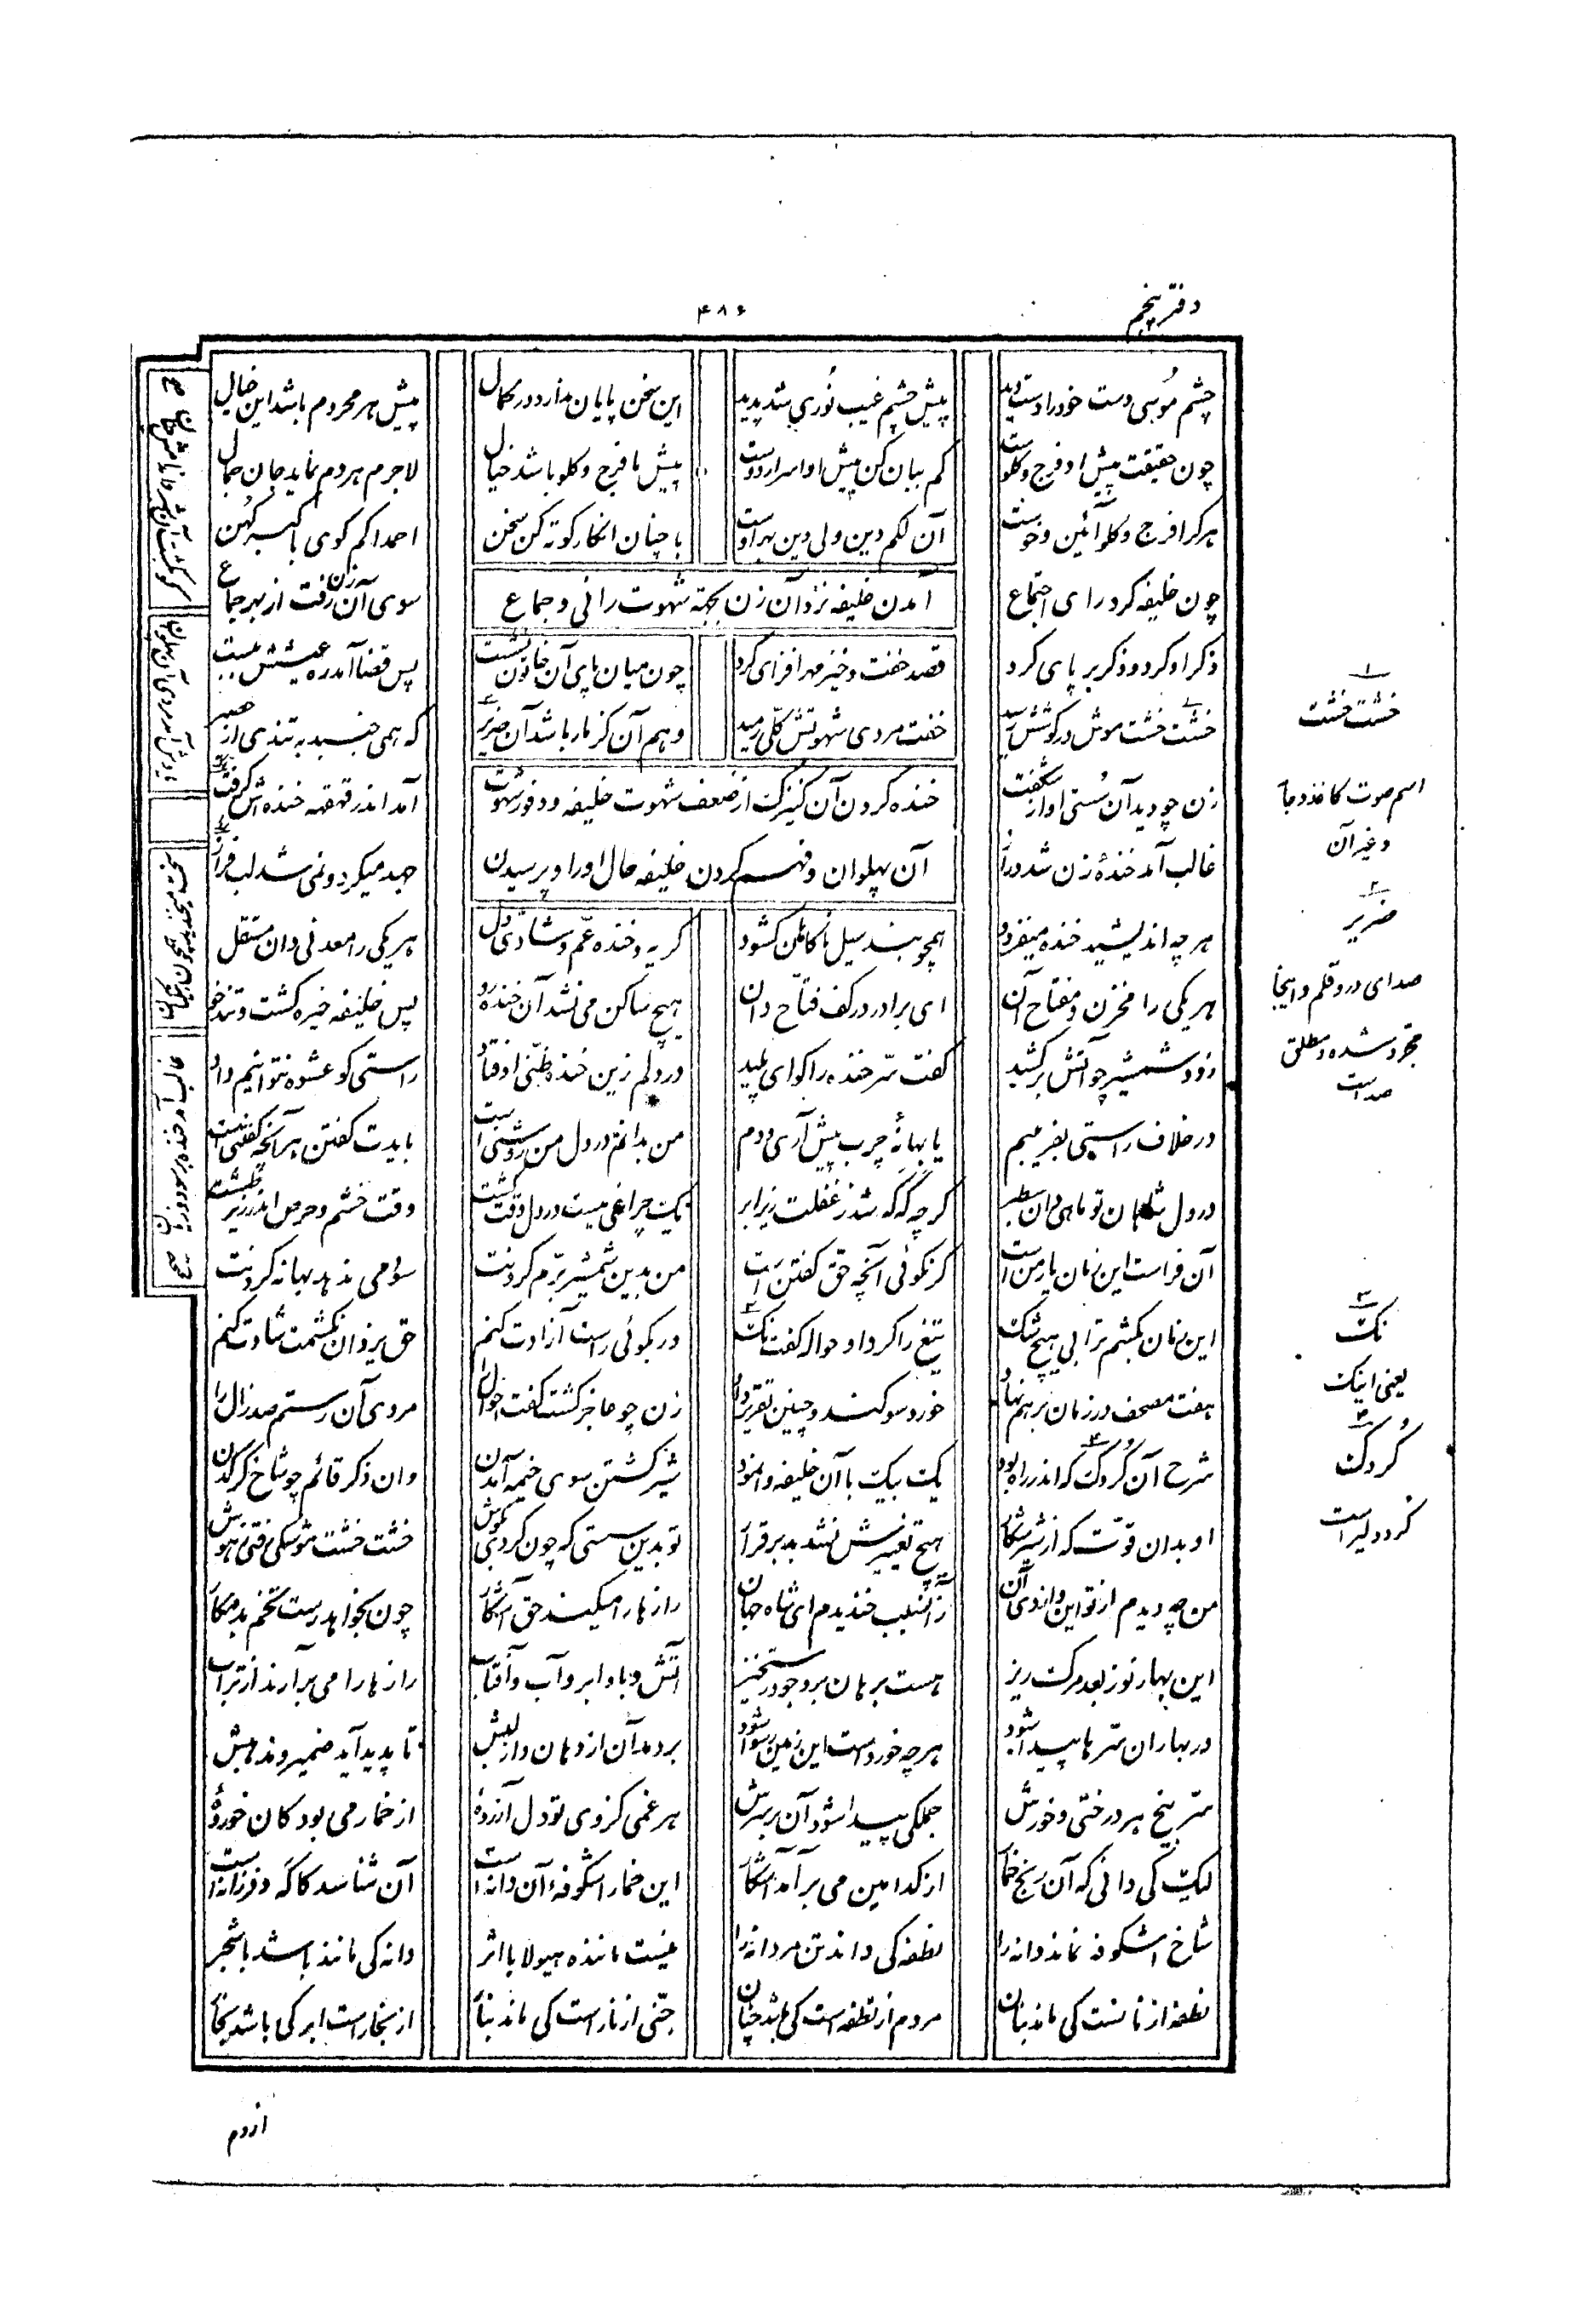 دفتر پنجم
۴۸۶
چشم موسی دست خود را دست دید پیش چشم غیب نوری شد پدید این سخن پایان ندارد در کمال پیش هر محروم باشد این خیال
چون حقیقت پیش او فرج و گلوست کم بیان کن پیش او اسرار دوست پیش ما فرج و گلو باشد خیال لاجرم هر دم نماید جان جمال
هر که را فرج و گلو آئین و خوست آن لکم دین ولی دین بهر اوست با چنان انکار کوته کن سخن احمدا کم گوی با گبر کهن
آمدن خلیفه نزد آن زن بجهة شهوت رانی و جماع
چون خلیفه کرد رای اجتماع سوی آن زن رفت از بهر جماع
ذکر او کرد و ذکر بر پای کرد قصد خفت و خیز مهر افزای کرد چون میان پای آن خاتون نشست پس قضا آمد ره عیشش ببست
خشت خشت موش در گوشش رسید خفت مردی شهوتش کلی رمید وهم آن کز مار باشد آن ضریر که همی جنبد به تندی از حصیر
خنده کردن آن کنیزک از ضعف شهوت خلیفه و وفور شهوت
آن پهلوان و فهم کردن خلیفه حال او را و پرسیدن
زن چو دید آن سستی او از شگفت آمد اندر قهقهه خنده اش گرفت
غالب آمد خندهٔ زن شد دراز جهد میکرد و نمی شد لب فراز
هر چه اندیشید خنده میفزود همچو بند سیل ناگاهان گشود گریه و خنده غم و شادی دل هر یکی را معدنی دان مستقل
هر یکی را مخزن و مفتاح آن ای برادر در کف فتاح دان هیچ ساکن می نشد آن خنده زو پس خلیفه خیره گشت و تندخو
زود شمشیر چو آتش بر کشید گفت سر خنده را گو ای پلید در دلم زین خنده ظنی اوفتاد راستی گو عشوه نتوانیم داد
در خلاف راستی بفریبیم یا بهانهٔ چرب پیش آری و دم من بدانم در دل من روشنی است بایدت گفتن هر آنچه گفتنیست
در دل شاهان تو ماهی دان سطبر گر چه گه گه شد ز غفلت زیر ابر یک چراغی هست در دل وقت گشت وقت خشم و حرص اندر زیر طشت
آن فراست این زمان یار من است گر نگوئی آنچه حق گفتن است من بدین شمشیر برم گردنت سود می ندهد بهانه کردنت
این زمان بکشم ترا بی هیچ شک تیغ را کرد او حواله گفت نک ور بگوئی راست آزادت کنم حق یزدان نکشمت شادت کنم
هفت مصحف در زمان بر هم نهاد خورد سوگند و چنین تقریر داد زن چو عاجز گشت گفت احوال را مردی آن رستم صد زال را
شرح آن گردک که اندر راه بود یک بیک با آن خلیفه وا نمود شیر کشتن سوی خیمه آمدن وان ذکر قائم چو شاخ کرگدن
او بدان قوت که از شیر شکار هیچ تغییرش نشد بد بر قرار تو بدین سستی که چون کردی بگوش خشت خشت موشکی رفتی ز هوش
من چه دیدم از تو این و از وی آن زان سبب خندیدم ای شاه جهان رازها را میکند حق آشکار چون بخواهد رست تخم بد مکار
این بهار نو ز بعد مرگ ریز هست برهان بر وجود رستخیز آتش و باد و ابر و آب و آفتاب رازها را می برآرند از تراب
در بهاران سرها پیدا شود هر چه خوردست این زمین رسوا شود بر دمد آن از دهان و از لبش تا پدید آید ضمیر و مذهبش
سر بیخ هر درختی و خورش جملگی پیدا شود آن بر سرش هر غمی کز وی تو دل آزردهٔ از خمار می بود کان خوردهٔ
لیک کی دانی که آن رنج خمار از کدامین می بر آمد آشکار این خمار اشکوفهٔ آن دانه است آن شناسد کاگه و فرزانه است
شاخ اشکوفه نماند دانه را نطفه کی ماند تن مردانه را نیست مانندهٔ هیولا با اثر دانه کی مانند باشد با شجر
نطفه از نانست کی ماند بنان مردم از نطفه است کی باشد چنان جنی از نار است کی ماند بنار از بخار است ابر کی باشد بخار
۱
خشت خشت
اسم صوت کاغذ و جامه
و غیر آن
۲
ضریر
صدای در و قلم و اینجا
مجرد شده و مطلق
صداست
۳
نک
یعنی اینک
۴
گردک
گرد و لیر است
از دم